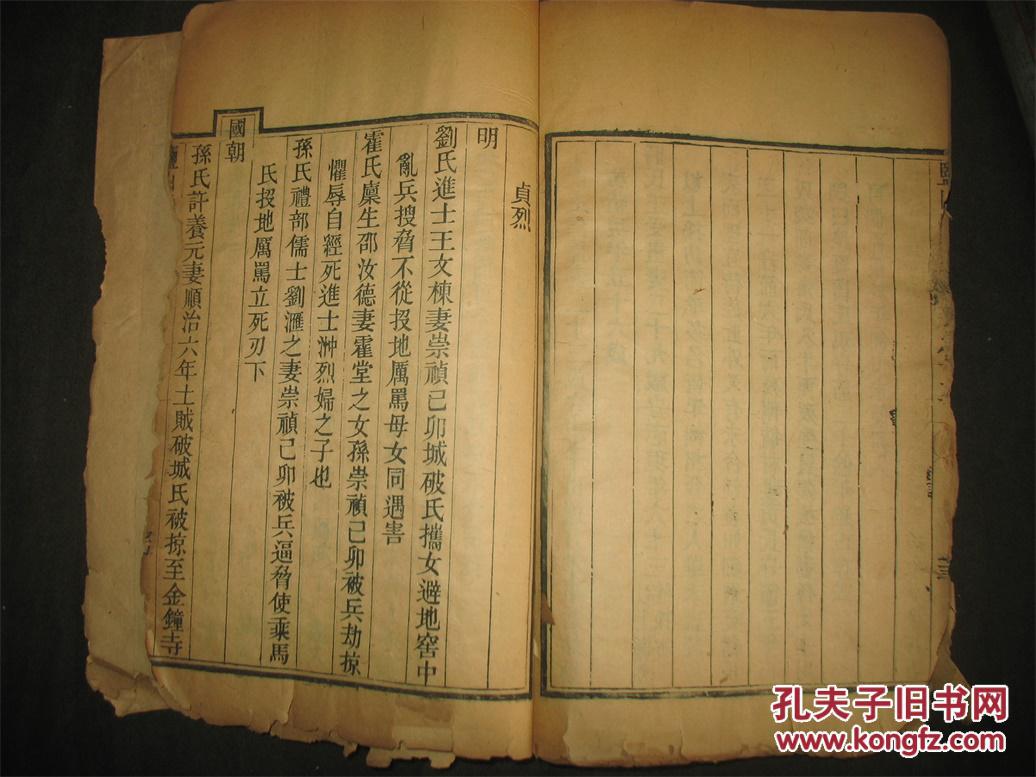 貞烈
明
劉氏進士王文棟妻崇禎己卯城破氏攜女避地窖中
亂兵搜脅不從投地厲罵母女同遇害
霍氏廩生邵汝德妻霍堂之女孫崇禎己卯被兵劫掠
懼辱自經死進士翀烈婦之子也
孫氏禮部儒士劉滙之妻崇禎己卯被兵逼脅使乘馬
氏投地厲罵立死刃下
國朝
孫氏許養元妻順治六年土賊破城氏被掠至金鐘寺
孔夫子旧书网
www.kongfz.com